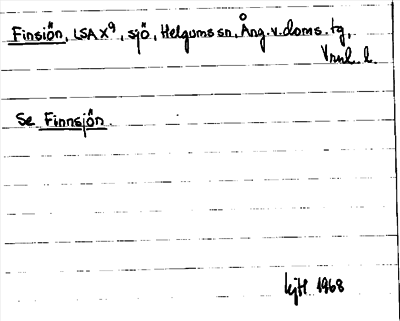 Finsiön, LSA X⁹, sjö, Helgums sn, Ång. v. doms. tg,
Vrnl. l.
Se Finnsjön.
1968